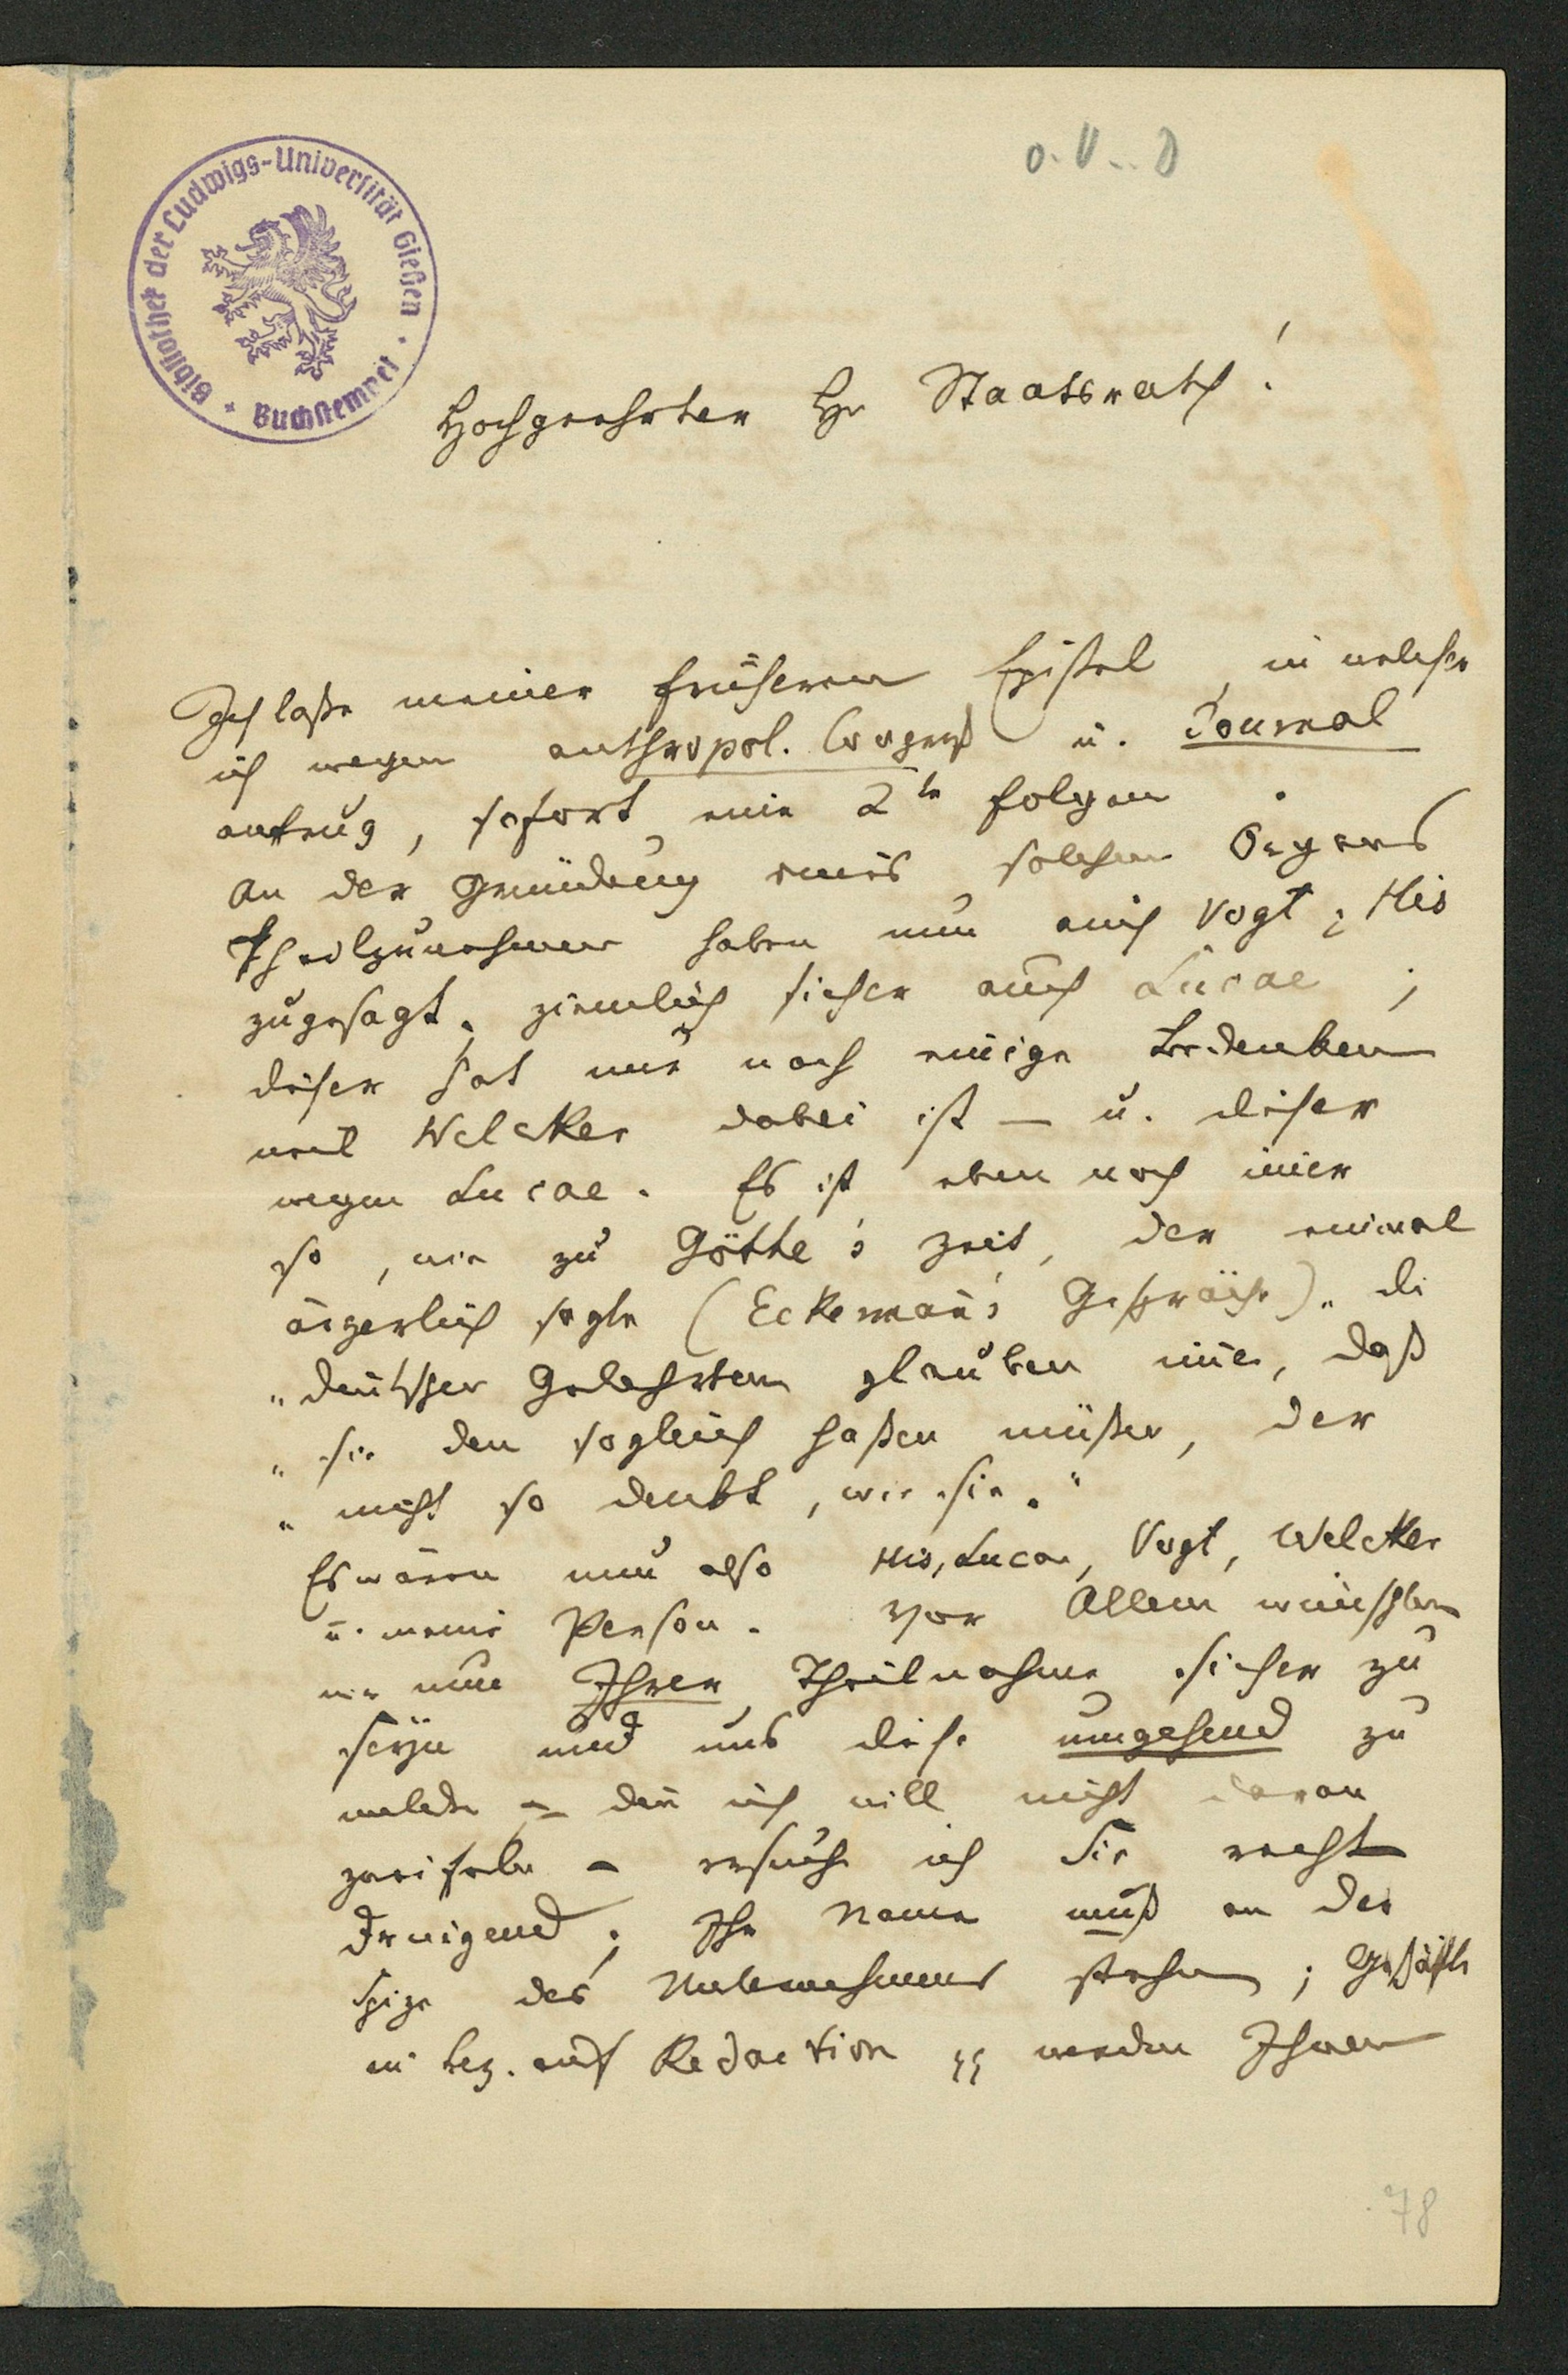 o. U. D
Bibliothek der Ludwigs-Universität Gießen
Buchstempel
Hochgeehrter Hr Staatsrath!
Ich laße meiner früheren Epistel, in welcher
ich wegen anthropol. Congreß u. Journal
anfrug, sofort eine 2te folgen.
An der Gründung eines solchen Organs
Theilzunehmen haben nun auch Vogt, His
zugesagt, ziemlich sicher auch Lucae;
dieser hat nur noch einige Bedenken
weil Welcker dabei ist – u. dieser
wegen Lucae. Es ist eben noch imer
so, wie zu Götthe's Zeit, der einmal
ärgerlich sagte (Eckermañ's Gespräche) „di
„deutschen Gelehrten glauben imer, daß
„sie den sogleich haßen müßen, der
„nicht so denkt, wie sie."
Es wären nun also His, Lucae, Vogt, Welcker
u. meine Person. Vor Allem wünschten
wir nun Ihrer Theilnahme sicher zu
seÿn und uns diese umgehend zu
melden – den ich will nicht daran
zweifeln – ersuche ich Sie recht
dringend. Ihr Name muß an der
Spize des Unternehmens stehen; Geschäfte
in bez. auf Redaction werden Ihnen
78